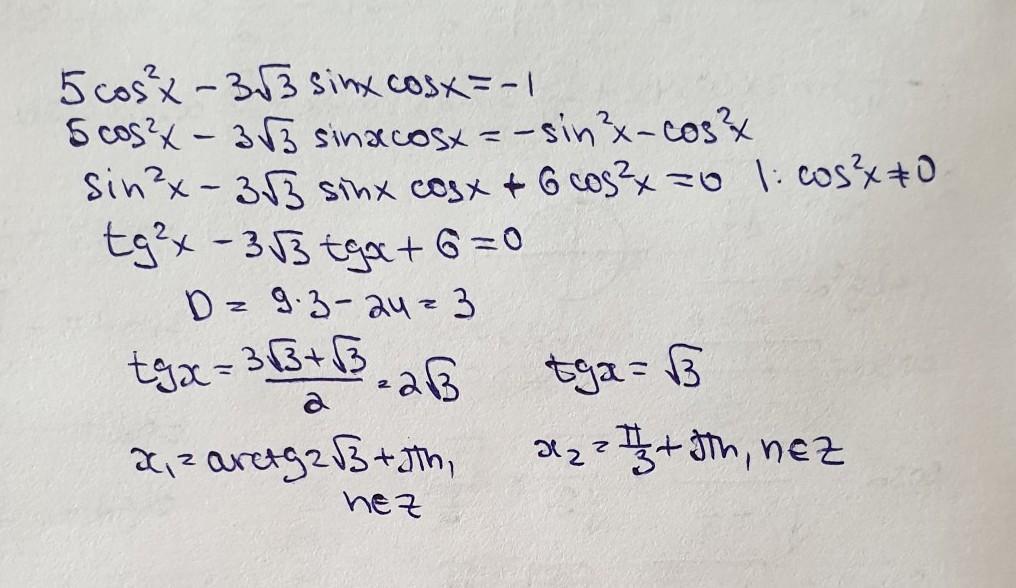 5cos²x - 3√3 sinx cosx = -1
5cos²x - 3√3 sinx cosx = -sin²x - cos²x
sin²x - 3√3 sinx cosx + 6cos²x = 0 |: cos²x ≠ 0
tg²x - 3√3 tgx + 6 = 0
D = 9·3 - 24 = 3
tgx = (3√3+√3)/2 = 2√3 tgx = √3
x₁ = arctg2√3 + πn, x₂ = π/3 + πn, n∈Z
n∈Z